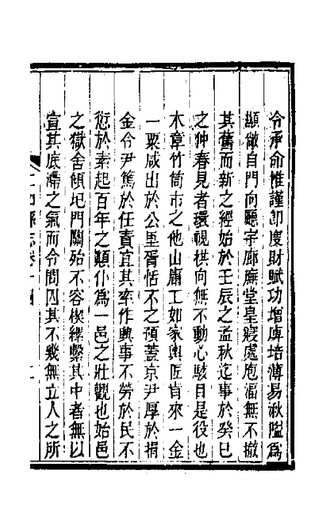 令承命惟謹卽度財賦功增庳培薄易湫隘爲
顯敞自門向廳宇廊廡堂皇寢處庖湢無不撤
其舊而新之經始於壬辰之孟秋迄事於癸巳
之仲春見者環視拱向無不動心駭目是役也
木章竹箇市之他山廟工如家輿匠肯來一金
一粟咸出於公里胥恬不之預蓋京尹厚於捐
金令尹篤於任責宜其率作興事不勞於民不
愆於素起百年之頽仆爲一邑之壯觀也始邑
之獄舍傾圯門闗殆不容楔縲縶其中者無以
宣其底滯之氣而令問囚其不幾無立人之所
縣志卷十